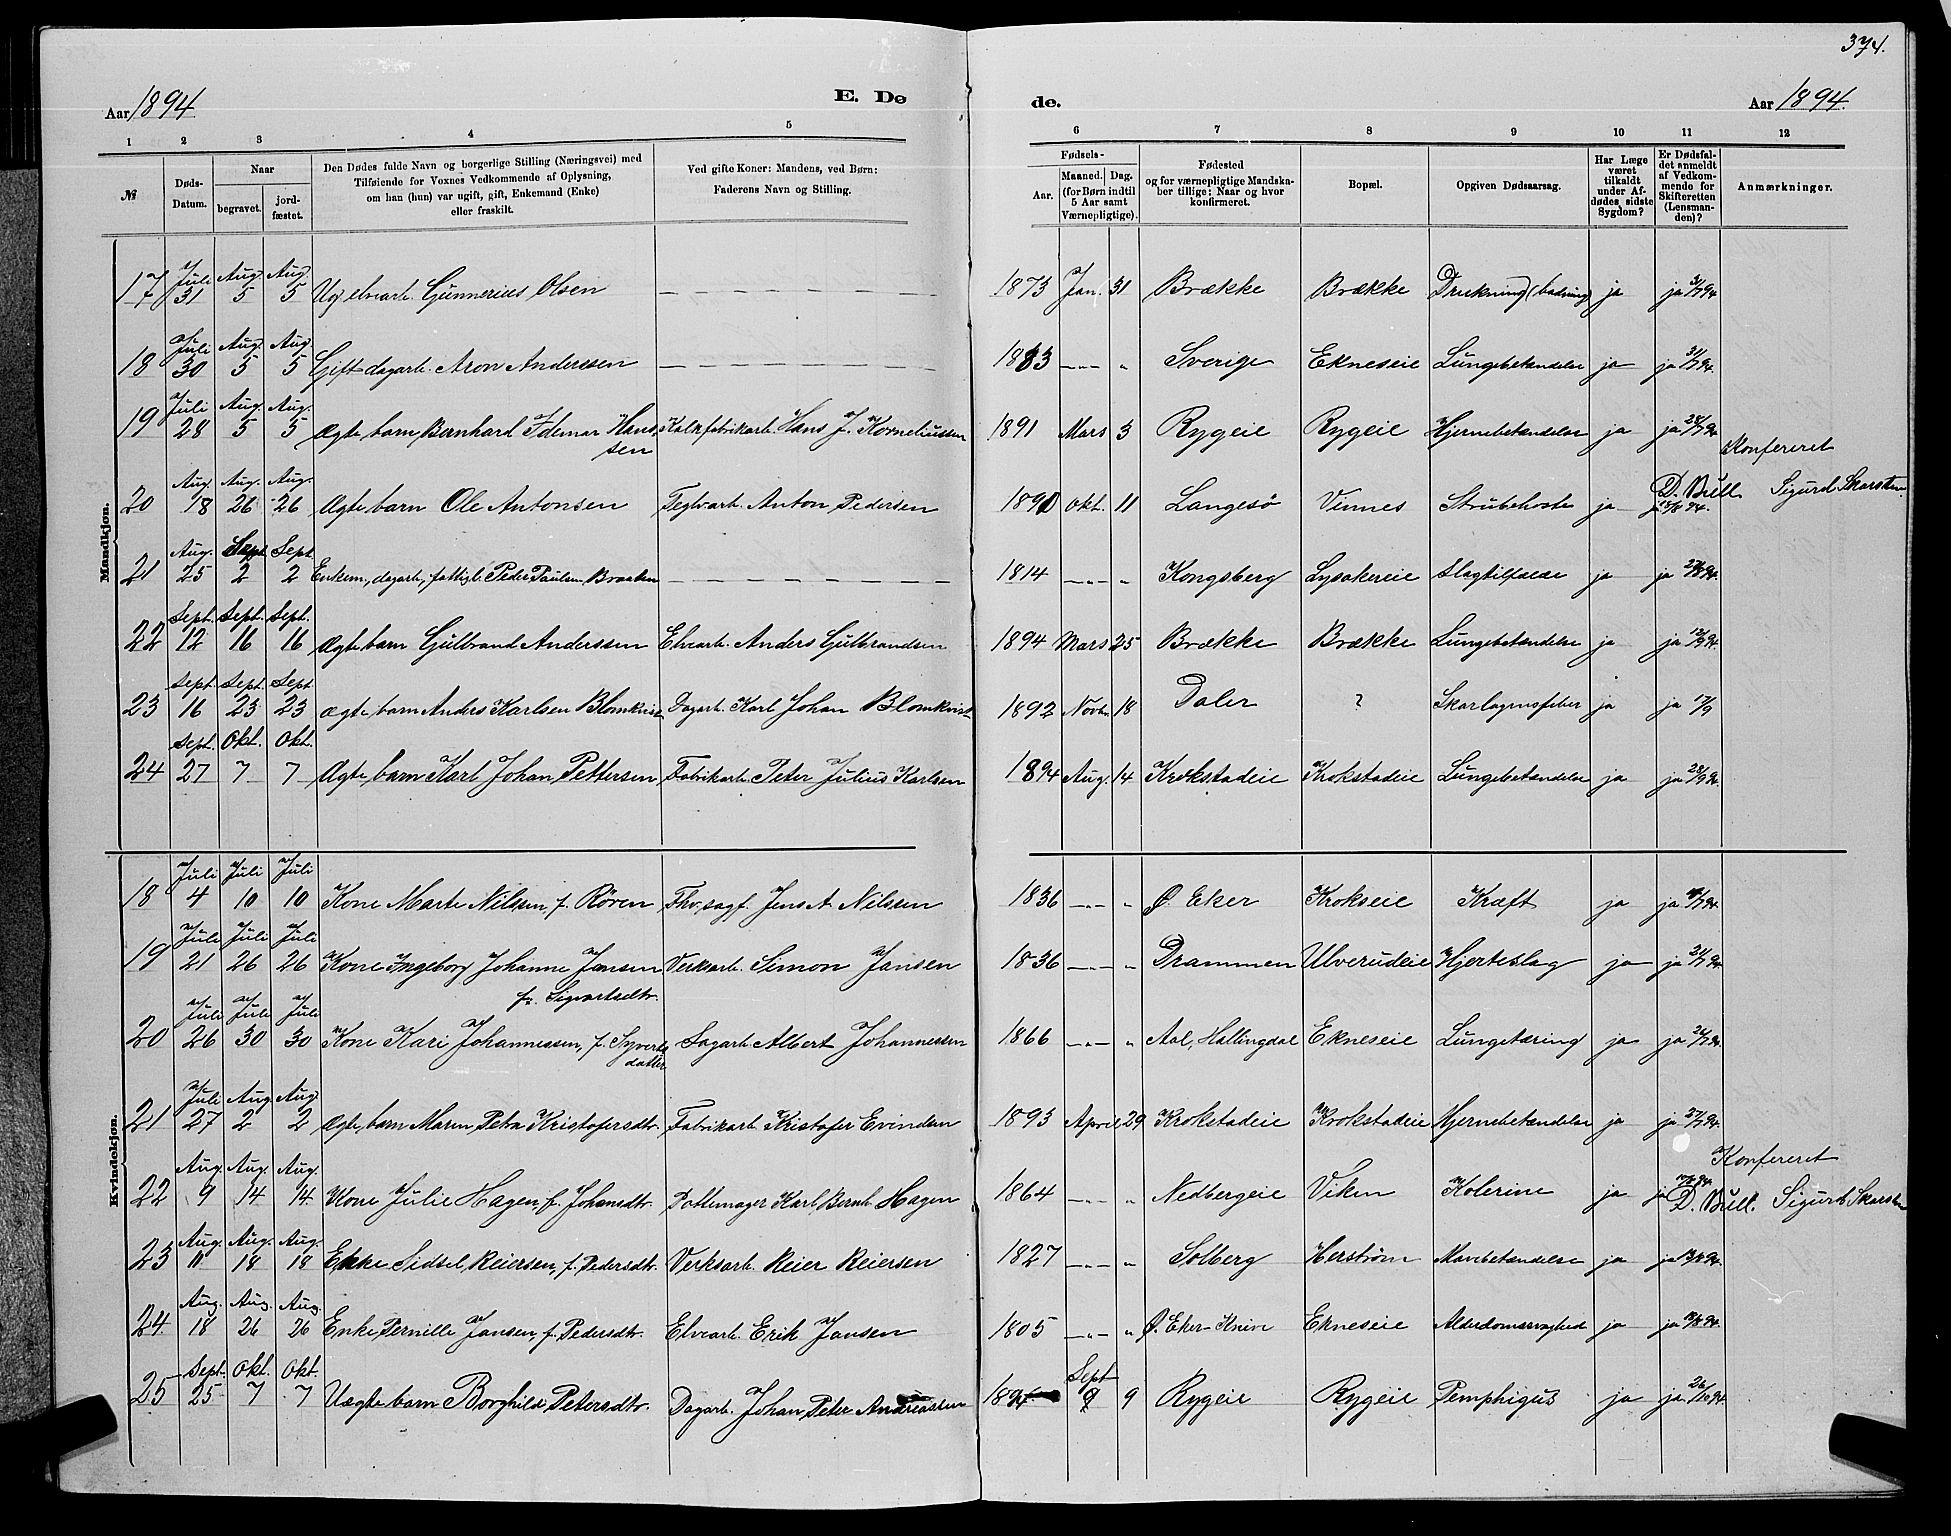 374.
Aar 1894 E. Dø de. Aar 1894.
1 2 3 4 5 6 7 8 9 10 11 12
№ Døds-Datum. Naar begravet. jord-fæstet. Den Dødes fulde Navn og borgerlige Stilling (Næringsvei) med Tilføiende for Voxnes Vedkommende af Oplysning, om han (hun) var ugift, gift, Enkemand (Enke) eller fraskilt. Ved gifte Koner: Mandens, ved Børn: Faderens Navn og Stilling. Fødsels- Aar. Maaned. Dag. (for Børn indtil 5 Aar samt Værnepligtige). Fødested og for værnepligtige Mandskaber tillige; Naar og hvor konfirmeret. Bopæl. Opgiven Dødsaarsag. Har Læge været tilkaldt under Afdødes sidste Sygdom? Er Dødsfaldet anmeldt af Vedkommende for Skifteretten (Lensmanden)? Anmærkninger.
Mandkjøn.
17 Juli 31 Aug. 5 Aug. 5 Ug. elvearb. Gunnerius Olsen — 1873 Jan. 31 Brække Brække Drukning (badning) ja ja 31/7 94
18 Juli 30 Aug. 5 Aug. 5 Gift dagarb. Aron Anderssen — 1883 — " Sverige Ekneseie Lungebetændelse ja ja 31/7 94.
19 Juli 28 Aug. 5 Aug. 5 Ægte barn Bernhard Idemar Hanssen Kalkfabrikarb. Hans J. Korneliussen 1891 Mars 3 Rygeie Rygeie Hjernebetændelse ja ja 28/7 94
Konfereret
20 Aug. 18 Aug. 26 Aug. 26 Ægte barn Ole Antonsen Teglvarb. Anton Pedersen 1890 Okt. 11 Langesö Vinnes Strubehoste ja ja 18/8 94. D. Bull Sigurd Skarsten
21 Aug. 25 Sept. 2 Sept. 2 Enkem., dagarb., fattigl. Peder Paulsen Braaten — 1814 — " Kongsberg Lysakereie Slagtilfælde ja ja 27/8 94.
22 Sept. 12 Sept. 16 Sept. 16 Ægte barn Gulbrand Anderssen Elvearb. Anders Gulbrandsen 1894 Mars 25 Brække Brække Lungebetændelse ja ja 12/9 94.
23 Sept. 16 Sept. 23 Sept 23 Ægte barn Anders Karlsen Blomkvist Dagarb. Karl Johan Blomkvist 1892 Novb. 18 Daler ? Skarlagensfeber ja ja 17/9
24 Sept. 27 Okt. 7 Okt. 7 Ægte barn Karl Johan Pettersen Fabrikarb. Peter Julius Karlsen 1894 Aug. 14 Krokstadeie Krokstadeie Lungebetændelse ja ja 28/9 94.
Kvindekjøn.
18 Juli 4 Juli 10 Juli 10 Kone Marte Nilssen, f. Rören Thv., sagf. Jens A Nilssen 1836 — " Ø. Eker Krokseie Kræft ja ja /7 94.
19 Juli 21 Juli 26 Juli 26 Kone Ingeborg Johanne Jansen f. Sigvartsdtr. Verksarb. Simon Jansen 1836 — " Drammen Ulverudeie Hjerteslag ja ja 21/7 94
20 Juli 26 Juli 30 Juli 30 Kone Kari Johannessen, f. Syvertsdatter Sagarb. Albert Johannessen 1866 — " Aal, Hallingdal Ekneseie Lungetæring ja ja 26/7 94.
21 Juli 27 Aug. 2 Aug 2 Ægte barn Maren Petra Kristofersdtr. Fabrikarb. Kristofer Evindsen 1893 April 29 Krokstadeie Krokstadeie Hjernebetændelse ja ja 27/7 94.
Konfereret
22 Aug. 9 Aug. 14 Aug. 14 Kone Julie Hagen, f. Johansdtr. Pottemager Karl Bernh. Hagen 1864 — " Nedbergeie Viken Kolerine ja ja D. Bull. Sigurd Skarsten
23 Aug. 11 Aug. 18 Aug. 18 Enke Sidsel Reiersen, f. Pedersdtr. Verksarb. Reier Reiersen 1827 — " Solberg Herstrøm Mavebetændelse ja ja 13/8 94.
24 Aug. 18 Aug. 26 Aug. 26 Enke Pernille Jansen, f. Pedersdtr. Elvearb. Erik Jansen 1805 — " Ø. Eker-Knin Ekneseie Alderdomssvaghed ja ja 18/8 94.
25 Sept. 25 Okt. 7 Okt. 7 Uægte barn Borghild Petersdtr. Dagarb. Johan Peter Andreassen 1894 Sept 9 Rygeie Rygeie Pemphigus ja ja 26/10 94